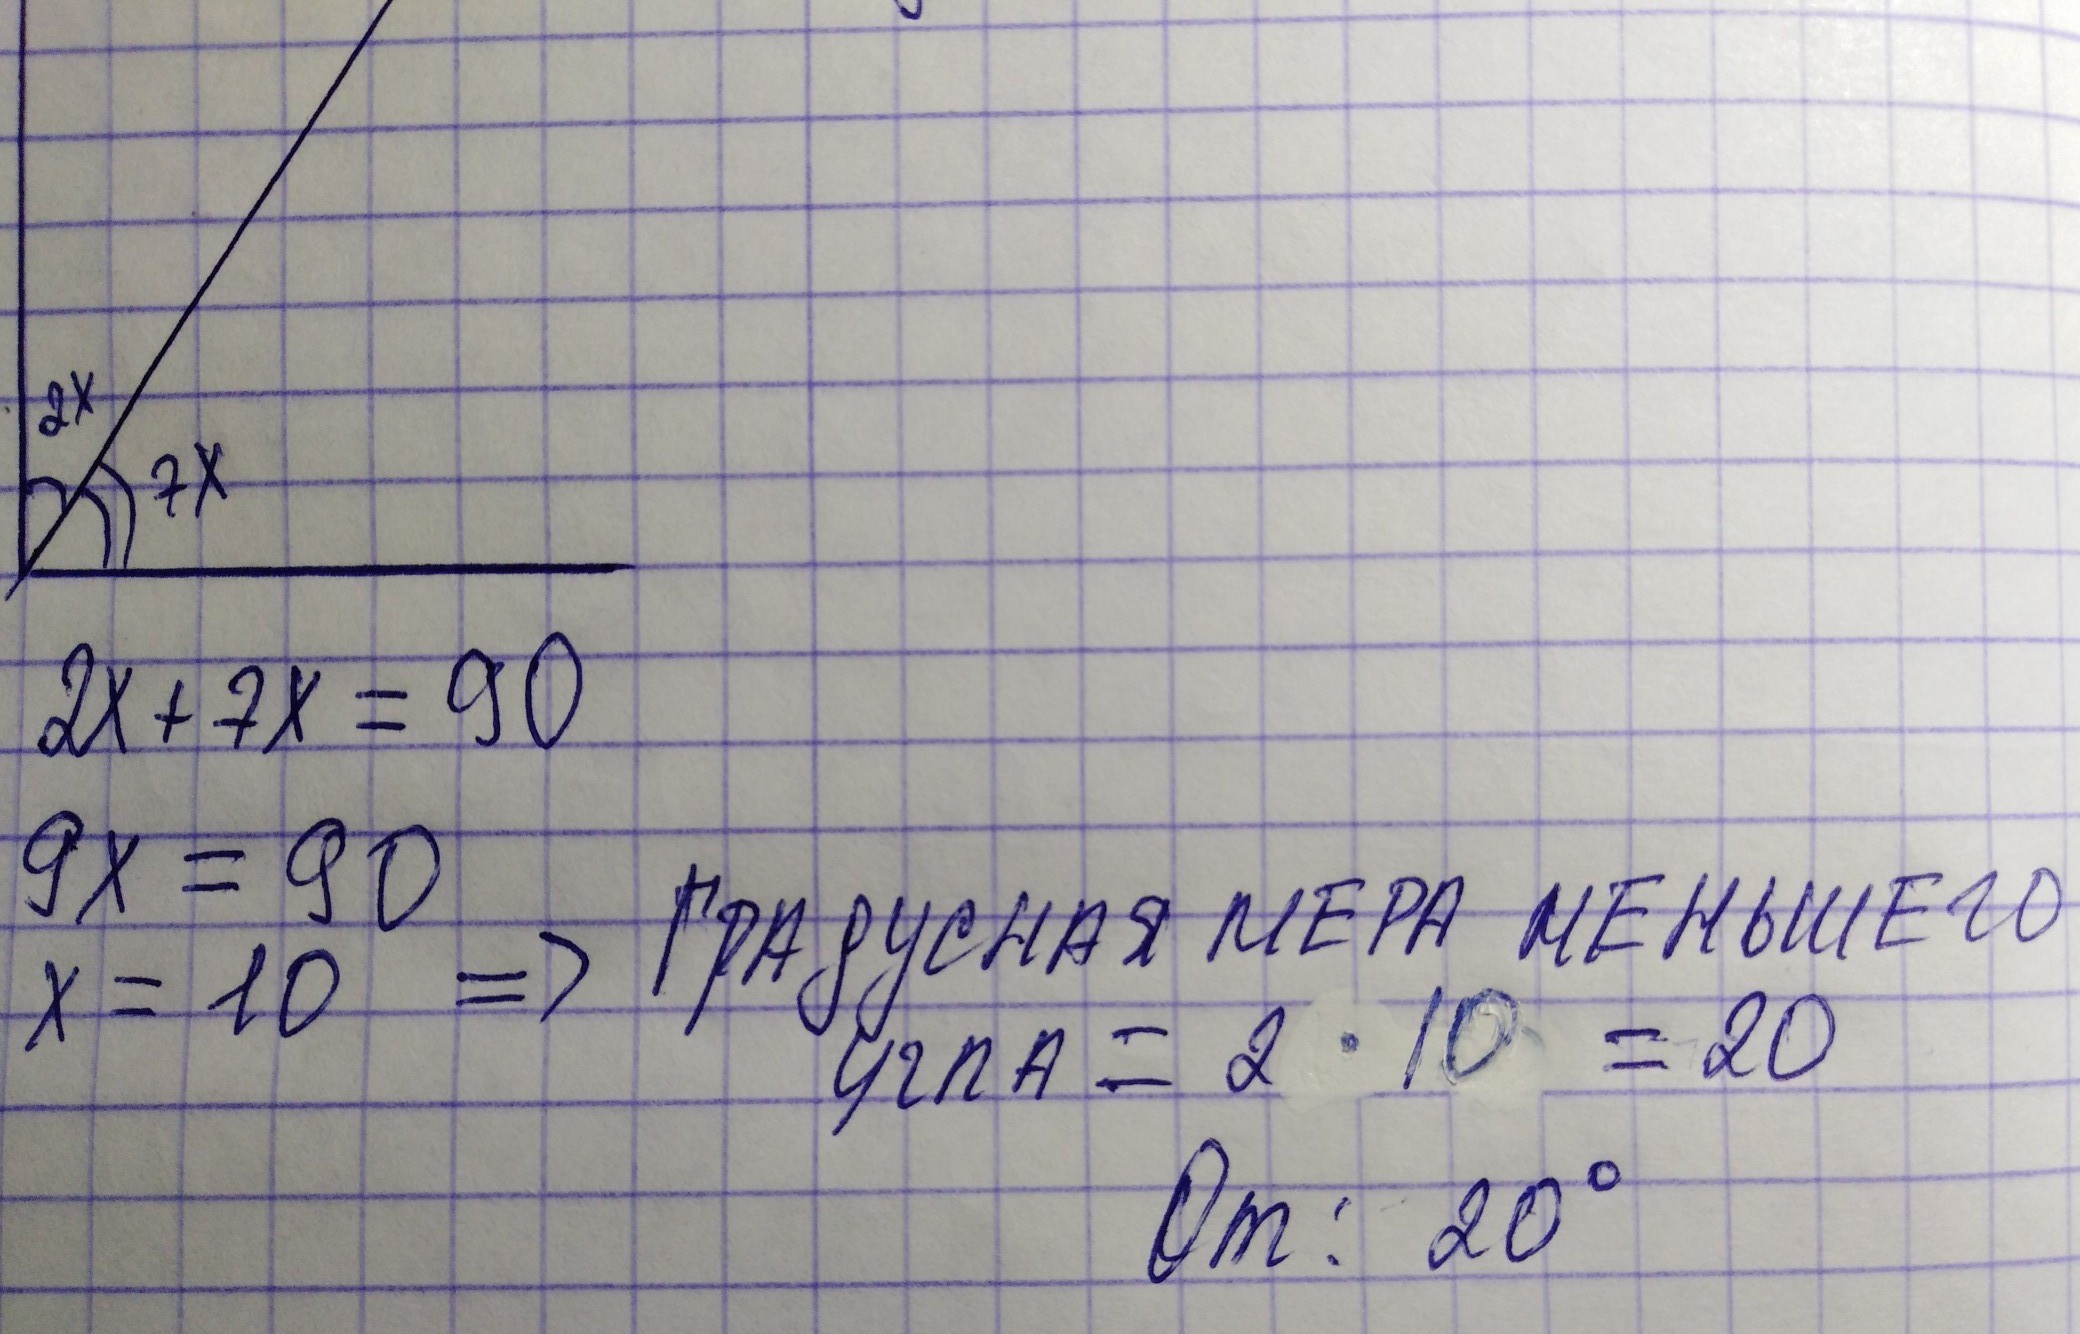 2x
7x
2x + 7x = 90
9x = 90
x = 10 => ГРАДУСНАЯ МЕРА МЕНЬШЕГО
УГЛА = 2 · 10 = 20
От: 20°